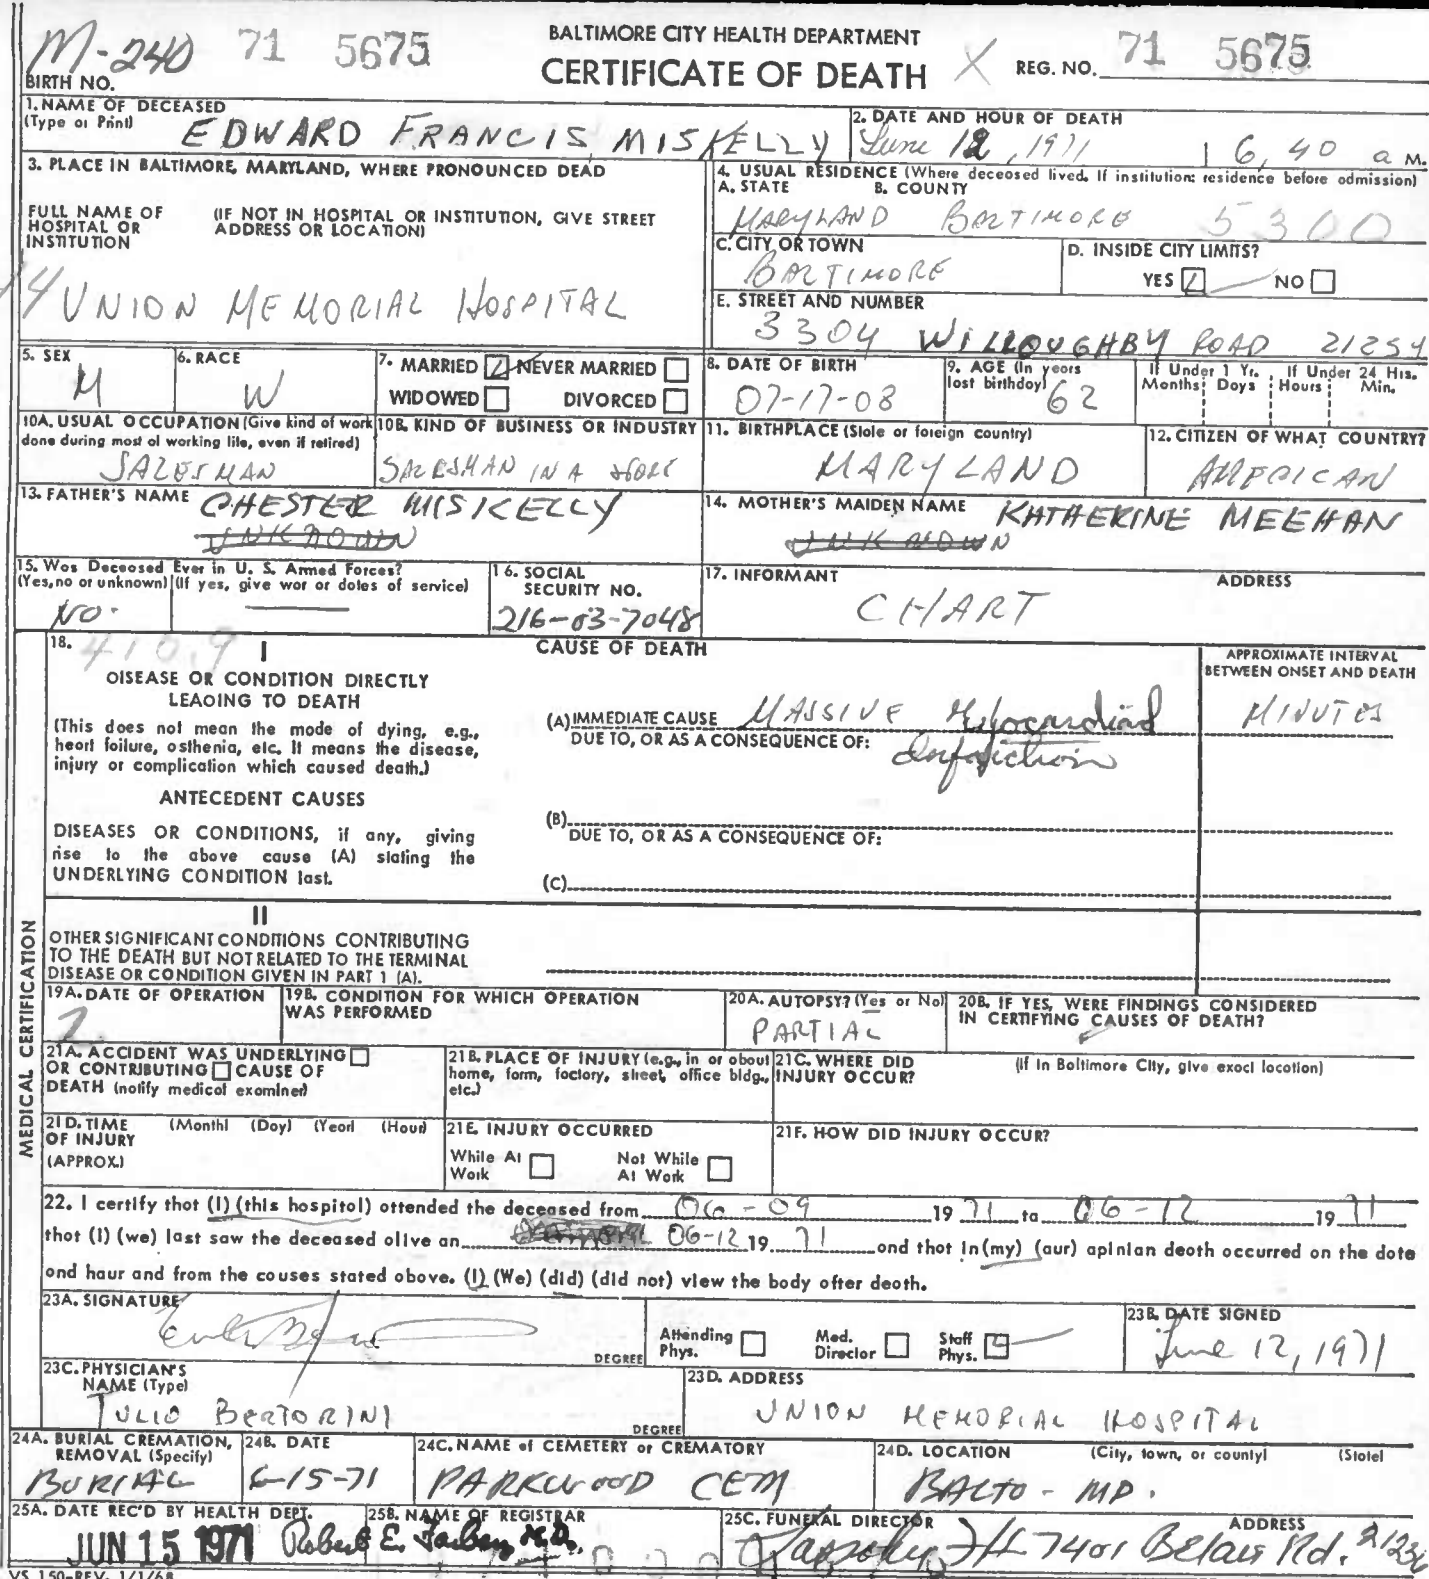 M-240 71 5675
BALTIMORE CITY HEALTH DEPARTMENT
CERTIFICATE OF DEATH X REG. NO. 71 5675
BIRTH NO.
1. NAME OF DECEASED
(Type or Print) EDWARD FRANCIS MISKELLY
2. DATE AND HOUR OF DEATH
June 12, 1971 6,40 a M.
3. PLACE IN BALTIMORE, MARYLAND, WHERE PRONOUNCED DEAD
FULL NAME OF HOSPITAL OR INSTITUTION
(IF NOT IN HOSPITAL OR INSTITUTION, GIVE STREET ADDRESS OR LOCATION)
14 UNION MEMORIAL HOSPITAL
4. USUAL RESIDENCE (Where deceased lived. If institution: residence before admission)
A. STATE B. COUNTY
MARYLAND BALTIMORE 5300
C. CITY OR TOWN
BALTIMORE
D. INSIDE CITY LIMITS?
YES NO
E. STREET AND NUMBER
3304 WILLOUGHBY ROAD 21234
5. SEX
M
6. RACE
W
7. MARRIED NEVER MARRIED
WIDOWED DIVORCED
8. DATE OF BIRTH
07-17-08
9. AGE (In years last birthday) 62
If Under 1 Yr. Months Days
If Under 24 Hrs. Hours Min.
10A. USUAL OCCUPATION (Give kind of work done during most of working life, even if retired)
SALESMAN
10B. KIND OF BUSINESS OR INDUSTRY
SALESMAN IN A STORE
11. BIRTHPLACE (State or foreign country)
MARYLAND
12. CITIZEN OF WHAT COUNTRY?
AMERICAN
13. FATHER'S NAME CHESTER MISKELLY
UNKNOWN
14. MOTHER'S MAIDEN NAME KATHERINE MEEHAN
UNKNOWN
15. Was Deceased Ever in U. S. Armed Forces?
(Yes, no or unknown) (If yes, give war or dates of service)
NO.
16. SOCIAL SECURITY NO.
216-03-7048
17. INFORMANT ADDRESS
CHART
MEDICAL CERTIFICATION
18. 410.9 I
CAUSE OF DEATH
APPROXIMATE INTERVAL BETWEEN ONSET AND DEATH
DISEASE OR CONDITION DIRECTLY
LEADING TO DEATH
(This does not mean the mode of dying, e.g.,
heart failure, asthenia, etc. It means the disease,
injury or complication which caused death.)
(A) IMMEDIATE CAUSE MASSIVE Myocardial MINUTES
DUE TO, OR AS A CONSEQUENCE OF: Infarction
ANTECEDENT CAUSES
DISEASES OR CONDITIONS, if any, giving
rise to the above cause (A) stating the
UNDERLYING CONDITION last.
(B)
DUE TO, OR AS A CONSEQUENCE OF:
(C)
II
OTHER SIGNIFICANT CONDITIONS CONTRIBUTING
TO THE DEATH BUT NOT RELATED TO THE TERMINAL
DISEASE OR CONDITION GIVEN IN PART 1 (A).
19A. DATE OF OPERATION
2
19B. CONDITION FOR WHICH OPERATION WAS PERFORMED
20A. AUTOPSY? (Yes or No)
PARTIAL
20B. IF YES, WERE FINDINGS CONSIDERED IN CERTIFYING CAUSES OF DEATH?
21A. ACCIDENT WAS UNDERLYING
OR CONTRIBUTING CAUSE OF
DEATH (notify medical examiner)
21B. PLACE OF INJURY (e.g., in or about home, farm, factory, street, office bldg., etc.)
21C. WHERE DID INJURY OCCUR? (If in Baltimore City, give exact location)
21D. TIME OF INJURY (APPROX.) (Month) (Day) (Year) (Hour)
21E. INJURY OCCURRED
While At Work Not While At Work
21F. HOW DID INJURY OCCUR?
22. I certify that (I) (this hospital) attended the deceased from 06-09 1971 to 06-12 1971
that (I) (we) last saw the deceased alive on 06-12 19 71 and that in (my) (our) opinion death occurred on the date
and hour and from the causes stated above. (I) (We) (did) (did not) view the body after death.
23A. SIGNATURE
DEGREE
Attending Phys. Med. Director Staff Phys.
23B. DATE SIGNED
June 12, 1971
23C. PHYSICIAN'S NAME (Type)
TULIO BERTORINI
DEGREE
23D. ADDRESS
UNION MEMORIAL HOSPITAL
24A. BURIAL CREMATION, REMOVAL (Specify)
BURIAL
24B. DATE
6-15-71
24C. NAME of CEMETERY or CREMATORY
PARKWOOD CEM
24D. LOCATION (City, town, or county) (State)
BALTO - MD.
25A. DATE REC'D BY HEALTH DEPT.
JUN 15 1971
25B. NAME OF REGISTRAR
Robert E. Farber, M.D.
25C. FUNERAL DIRECTOR ADDRESS
7401 Belair Rd. 21236
VS 150-REV. 1/1/68